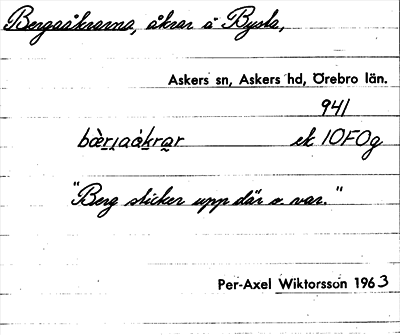 Bergaåkrarna, åkrar å Bysta,
Askers sn, Askers hd, Örebro län.
941
bæ̀r̠ı̭aák̠ra̰r ek 10F0g
"Berg sticker upp där o. var."
Per-Axel Wiktorsson 1963